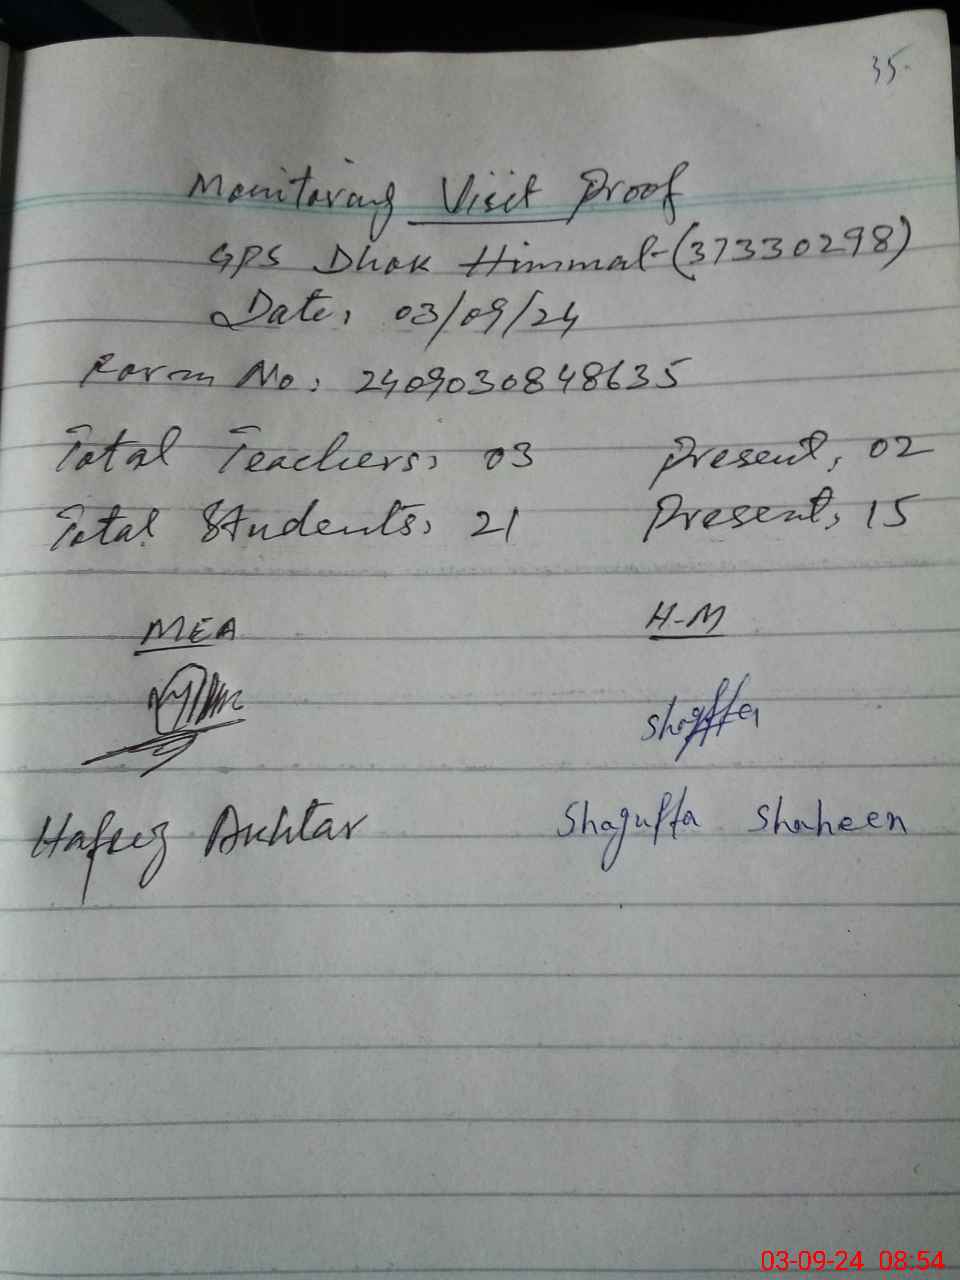 35.
Monitoring Visit Proof
GPS Dhok Himmat-(37330298)
Date, 03/09/24
Form No: 2409030848635
Total Teachers, 03 Present, 02
Total Students, 21 Present, 15
MEA H-M
Shagffa
Hafeez Akhtar Shaguffa Shaheen
03-09-24 08:54